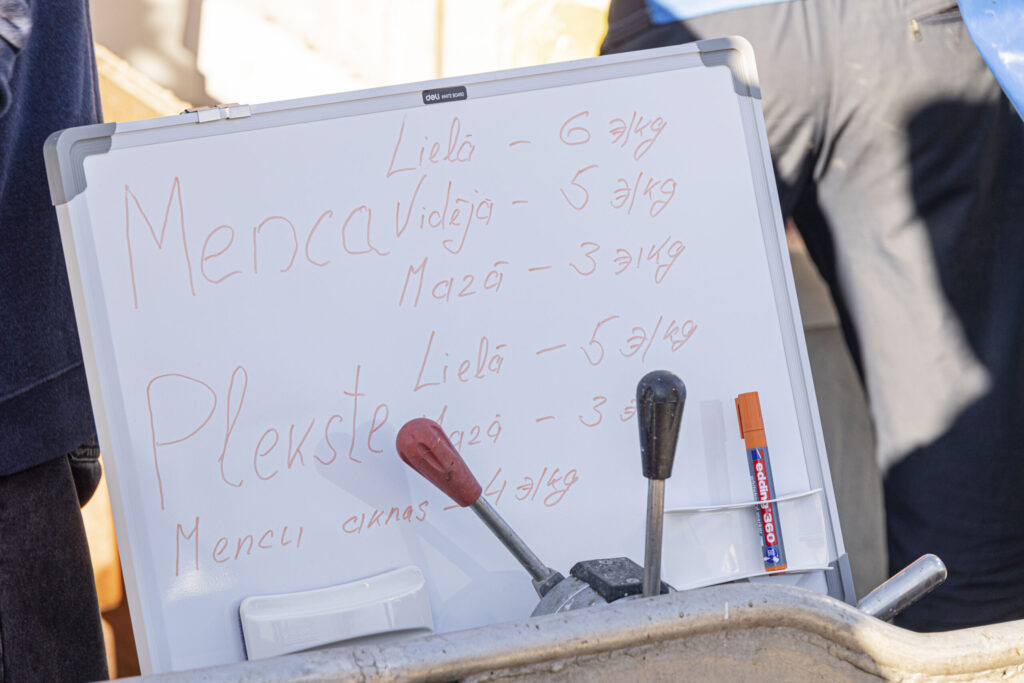 deli WHITE BOARD
Lielā - 6 э/kg
Menca Vidējā - 5 э/kg
Mazā - 3 э/kg
Lielā - 5 э/kg
Plekste
- 3 э
Mencu aknas - 4 э/kg
edding 360